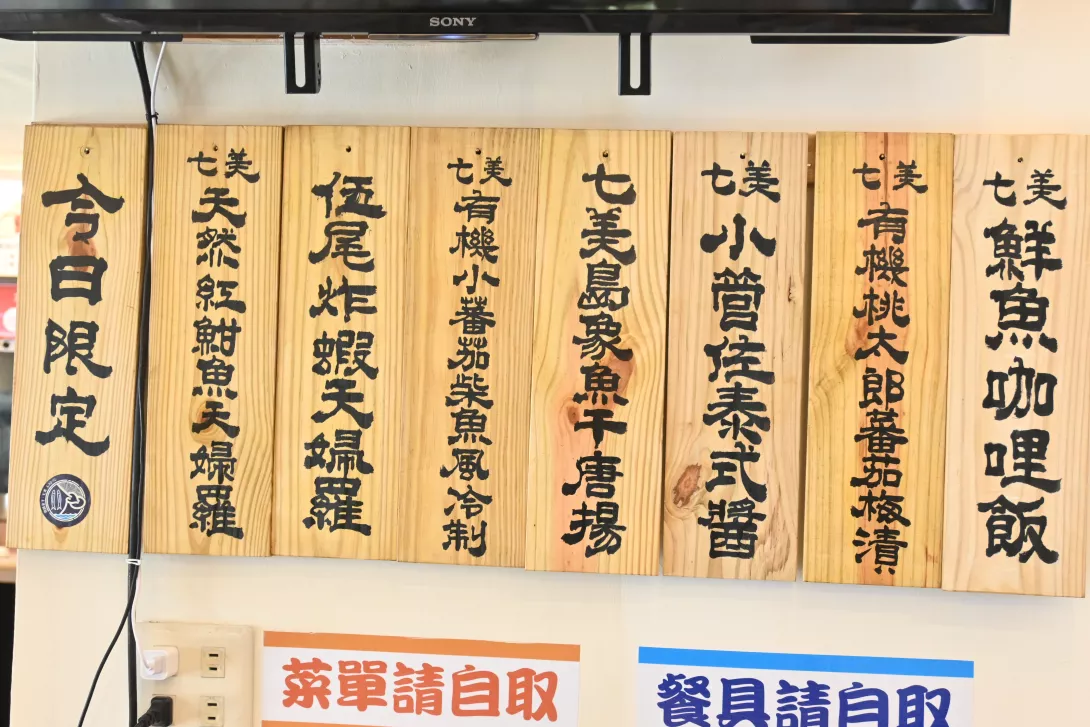 SONY
今日限定
七美天然紅魽魚天婦羅
伍尾炸蝦天婦羅
七美有機小蕃茄柴魚風冷制
七美島象魚干唐揚
七美小管佐泰式醬
七美有機桃太郎蕃茄梅漬
七美鮮魚咖哩飯
菜單請自取
餐具請自取